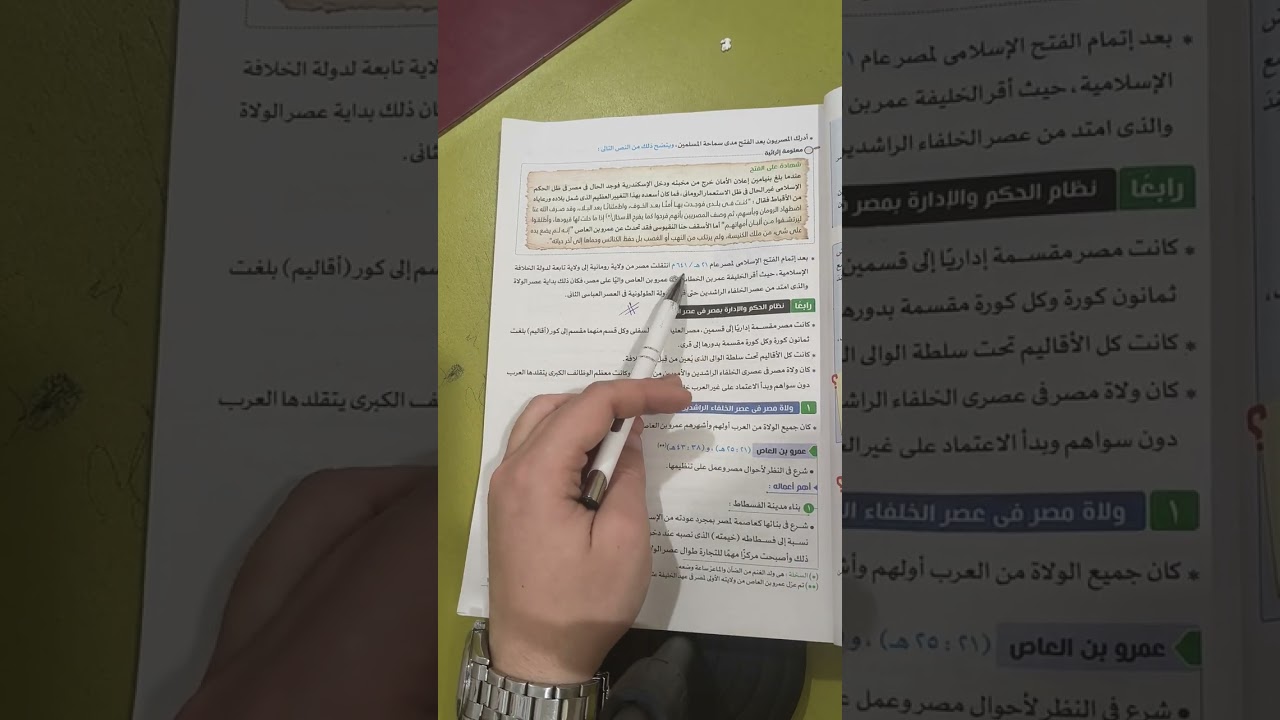 • أدرك المصريون بعد الفتح مدى سماحة المسلمين، ويتضح ذلك من النص التالى :
معلومة إثرائية
شهادة على الفتح
عندما بلغ بنيامين إعلان الأمان خرج من مخبئه ودخل الإسكندرية فوجد الحال فى مصر فى ظل الحكم
الإسلامى غير الحال فى ظل الاستعمار الرومانى، فما كان أسعده بهذا التغيير العظيم الذى شمل بلاده ورعاياه
من الأقباط فقال : "كنت فى بلدى فوجدت بها أمنًا بعد الخوف، واطمئنانًا بعد البلاء، وقد صرف الله عنا
اضطهاد الرومان وبأسهم، ثم وصف المصريين بأنهم فرحوا كما يفرح الأسخال(*) إذا ما حلت لها قيودها، وأطلقوا
ليرتشفوا من ألبان أمهاتهم" أما الأسقف حنا النقيوسى فقد تحدث عن عمرو بن العاص "إنه لم يضع يده
على شىء من ملك الكنيسة، ولم يرتكب من النهب أو الغصب بل حفظ الكنائس وحماها إلى آخر حياته".
* بعد إتمام الفتح الإسلامى لمصر عام ٢١ هـ / ٦٤١ م انتقلت مصر من ولاية رومانية إلى ولاية تابعة لدولة الخلافة
الإسلامية، حيث أقر الخليفة عمر بن الخطاب عمرو بن العاص واليًا على مصر، فكان ذلك بداية عصر الولاة
والذى امتد من عصر الخلفاء الراشدين حتى الدولة الطولونية فى العصر العباسى الثانى.
رابعًا نظام الحكم والإدارة بمصر فى عصر
* كانت مصر مقسمة إداريًا إلى قسمين، مصر العليا السفلى وكل قسم منهما مقسم إلى كور (أقاليم) بلغت
ثمانون كورة وكل كورة مقسمة بدورها إلى قرى.
* كانت كل الأقاليم تحت سلطة الوالى الذى يُعين من قبل
* كان ولاة مصر فى عصرى الخلفاء الراشدين والأمويين من وكانت معظم الوظائف الكبرى يتقلدها العرب
دون سواهم وبدأ الاعتماد على غير العرب
١ ولاة مصر فى عصر الخلفاء الراشدين
* كان جميع الولاة من العرب أولهم وأشهرهم عمرو بن العاص
عمرو بن العاص (٢١ : ٢٥ هـ) ، و (٣٨ : ٤٣ هـ)(**)
• شرع فى النظر لأحوال مصر وعمل على تنظيمها.
أهم أعماله :
١ بناء مدينة الفسطاط :
* شرع فى بنائها كعاصمة لمصر بمجرد عودته من
نسبة إلى فسطاطه (خيمته) الذى نصبه عند
ذلك وأصبحت مركزًا مهمًا للتجارة طوال عصر
(*) السخلة : هى ولد الغنم من الضأن والماعز ساعة وضعه.
(**) تم عزل عمرو بن العاص من ولايته الأولى لمصر فى عهد الخليفة